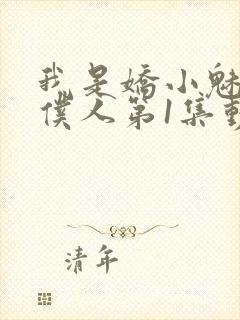 我是嬌小魅
僕人第1集動
清年